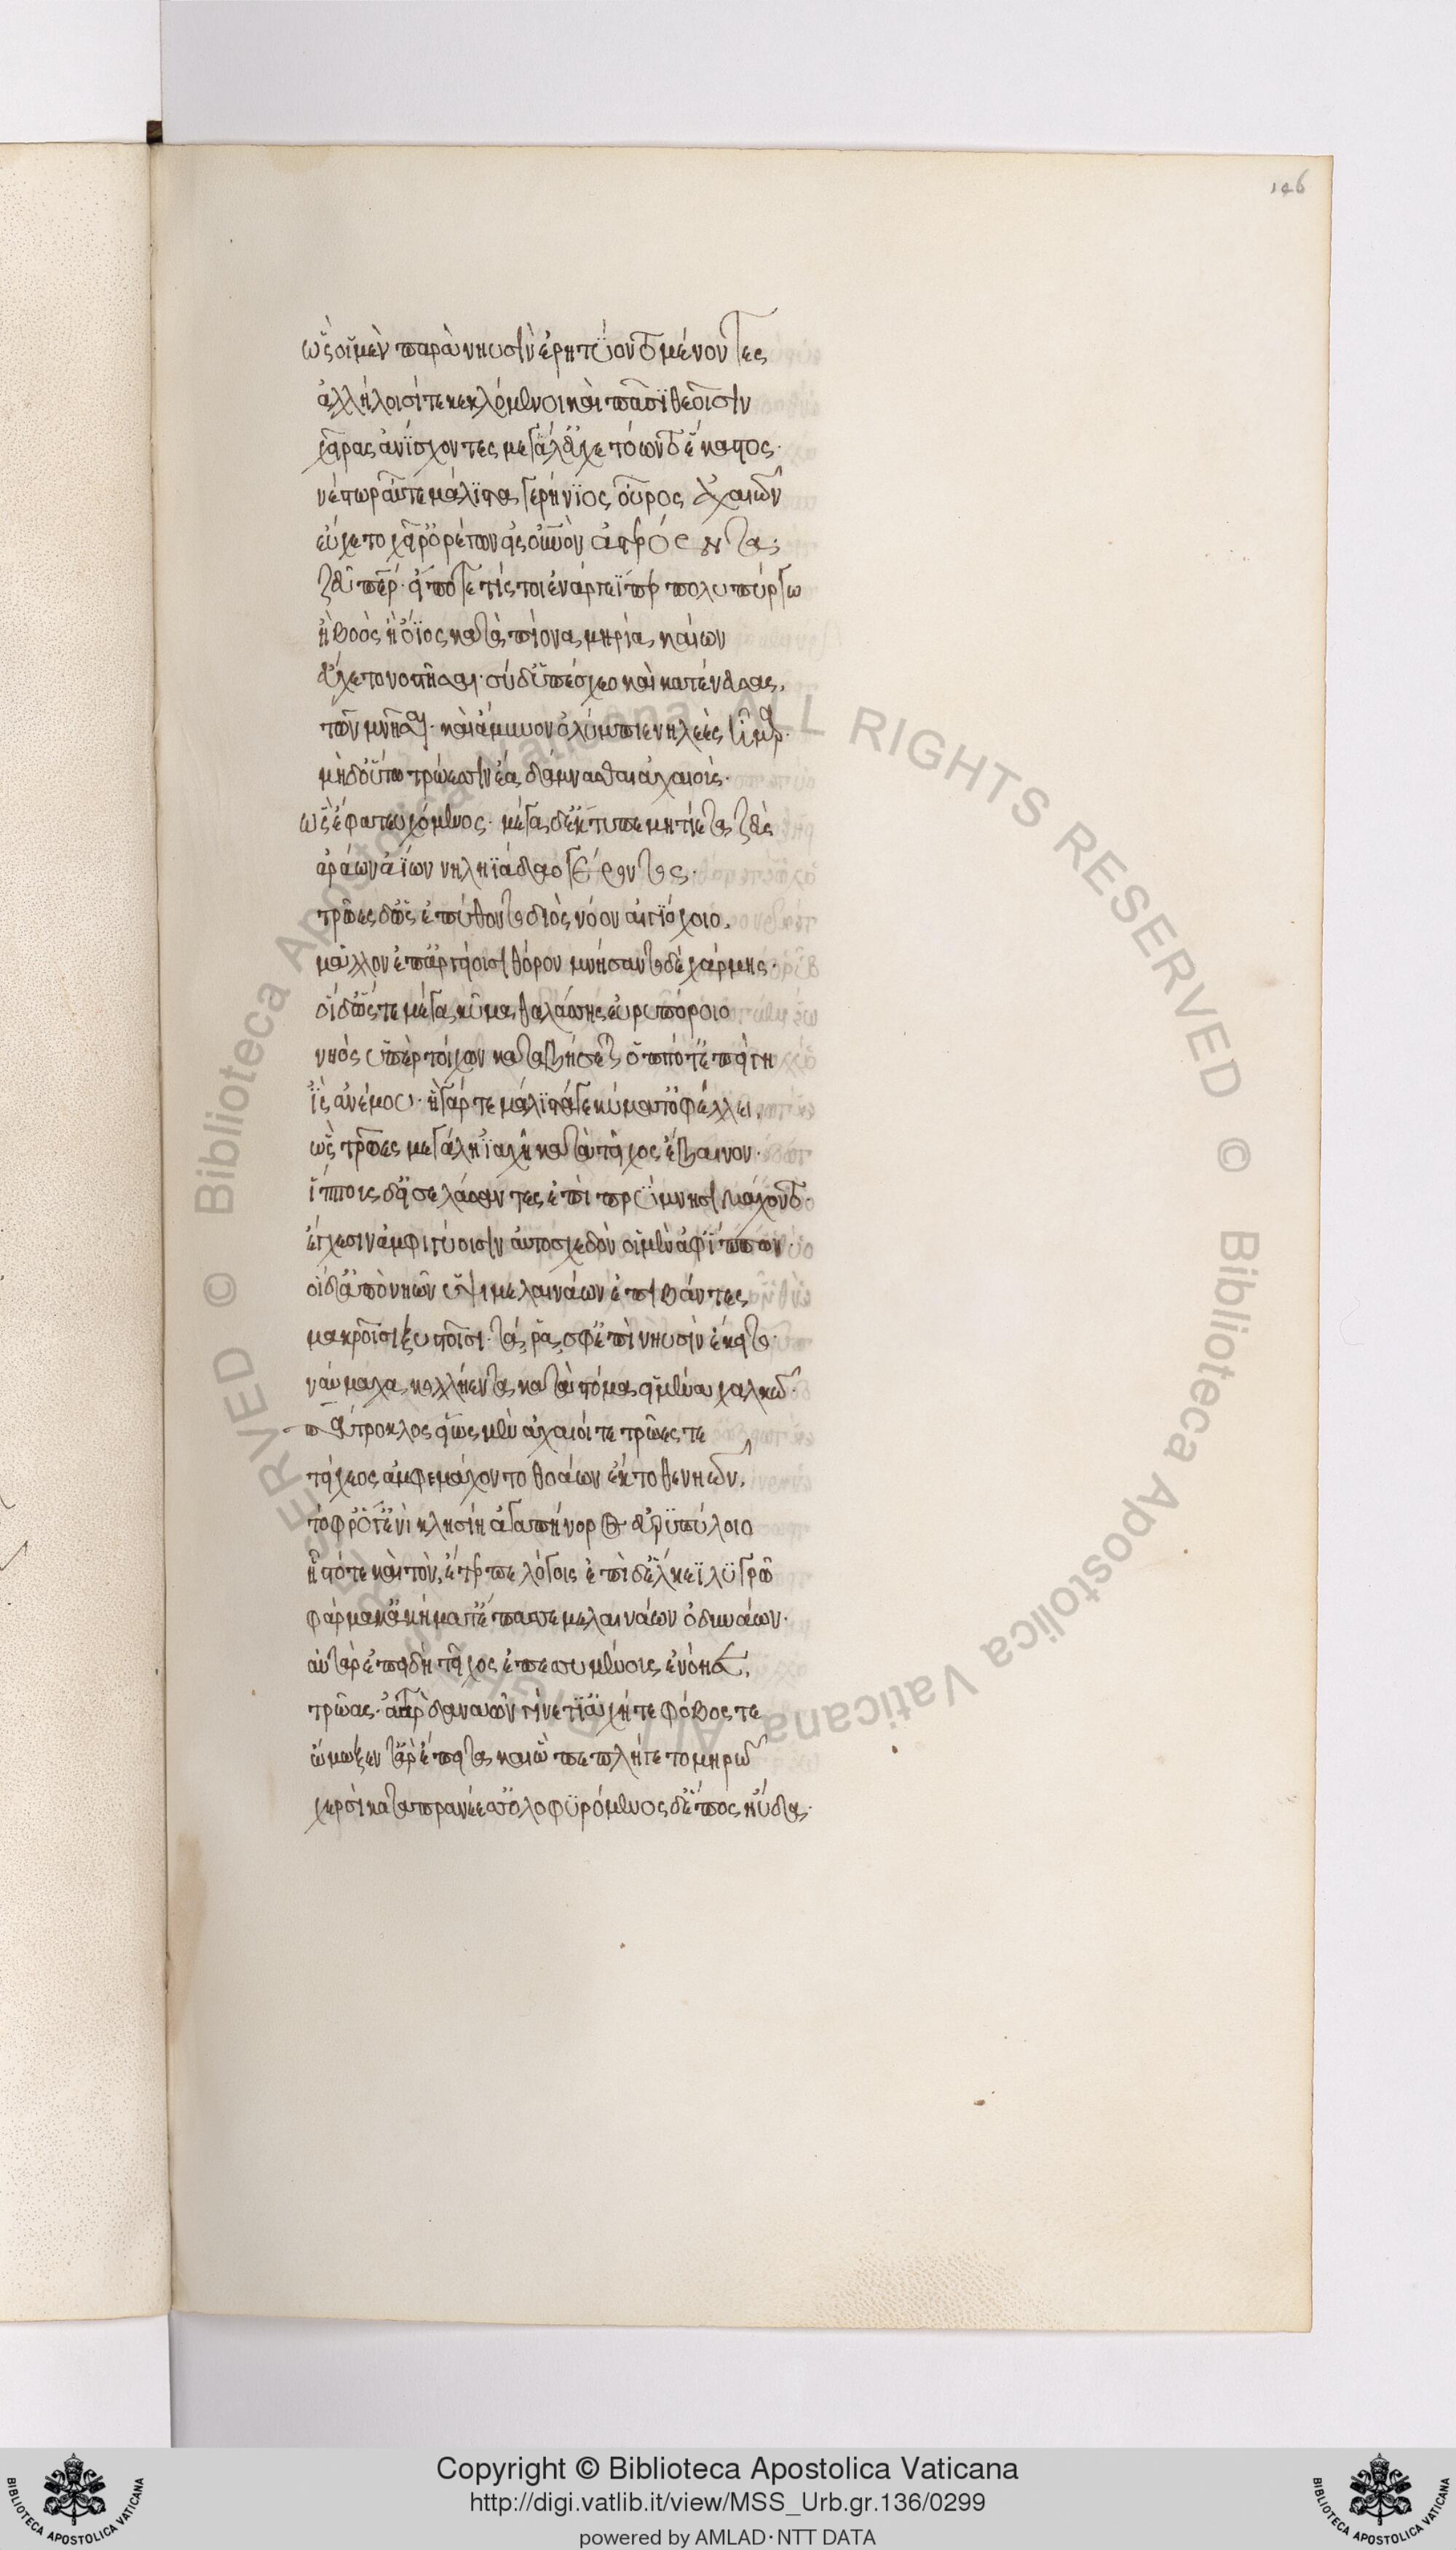 146
ὣς οἳ μὲν παρὰ νηυσὶν ἐρητύοντο μένοντες
ἀλλήλοισί τε κεκλόμενοι καὶ πᾶσι θεοῖσιν
χεῖρας ἀνίσχοντες μεγάλ' εὔχετόωντο ἕκαστος·
νέστωρ αὖτε μάλιστα γερήνιος οὖρος ἀχαιῶν
εὔχετο χεῖρ' ὀρέγων εἰς οὐρανὸν ἀστερόεντα·
ζεῦ πάτερ· εἴποτέ τίς τοι ἐν ἄργεΐ περ πολυπύργω
ἢ βοὸς ἢ ὄϊος κατὰ πίονα μηρία καίων
εὔχετο νοστῆσαι· σὺ δ' ὑπέσχεο καὶ κατένευσας,
τῶν μνῆσαι· καὶ ἄμυνον ὀλύμπιε νηλεὲς ἦμαρ·
μηδ' οὕτω τρώεσσιν ἔα δάμνασθαι ἀχαιούς·
ὣς ἔφατ' εὐχόμενος· μέγα δ' ἔκτυπε μητίετα ζεὺς
ἀράων ἀΐων νηληϊάδαο γέροντος·
τρῶες δ' ὡς ἐπύθοντο διὸς νόον αἰγιόχοιο,
μᾶλλον ἐπ' ἀργείοισι θόρον μνήσαντο δὲ χάρμης·
οἱ δ' ὥς τε μέγα κῦμα θαλάσσης εὐρυπόροιο
νηὸς ὑπὲρ τοίχων καταβήσεται ὁππότ' ἐπείγη
ἲς ἀνέμου· ἡ γάρ τε μάλιστά γε κύματ' ὀφέλλει,
ὣς τρῶες μεγάλη ἰαχῆ κατὰ τεῖχος ἔβαινον·
ἵππους δ' εἰσελάσαντες ἐπὶ πρύμνησι μάχοντο·
ἔγχεσιν ἀμφιγύοισιν αὐτοσχεδὸν οἱ μὲν ἀφ' ἵππων·
οἱ δ' ἀπὸ νηῶν ὕψι μελαινάων ἐπιβάντες
μακροῖσι ξυστοῖσι· τά ῥα σφ' ἐπὶ νηυσὶν ἔκειτο·
ναύμαχα κολλήεντα κατὰ στόμα εἱμένα χαλκῶ·
πάτροκλος εἵως μὲν ἀχαιοί τε τρῶές τε
τείχεος ἀμφεμάχοντο θοάων ἔκτοθε νηῶν,
τόφρ' ὅγ' ἐνὶ κλισίη ἀγαπήνορος εὐρυπύλοιο
ἧστό τε καὶ τὸν ἔτερπε λόγοις ἐπὶ δ' ἕλκεϊ λυγρῶ
φάρμακ' ἀκήματ' ἔπασσε μελαινάων ὀδυνάων·
αὐτὰρ ἐπειδὴ τεῖχος ἐπεσσυμένους ἐνόησε,
τρῶας· ἀτὰρ δαναῶν γένετ' ἰαχή τε φόβος τε
ᾤμωξέν τ' ἄρ' ἔπειτα καὶ ὣ πεπλήγετο μηρὼ
χερσὶ καταπρηνέεσσ' ὀλοφυρόμενος δ' ἔπος ηὔδα·
Copyright © Biblioteca Apostolica Vaticana
http://digi.vatlib.it/view/MSS_Urb.gr.136/0299
powered by AMLAD·NTT DATA